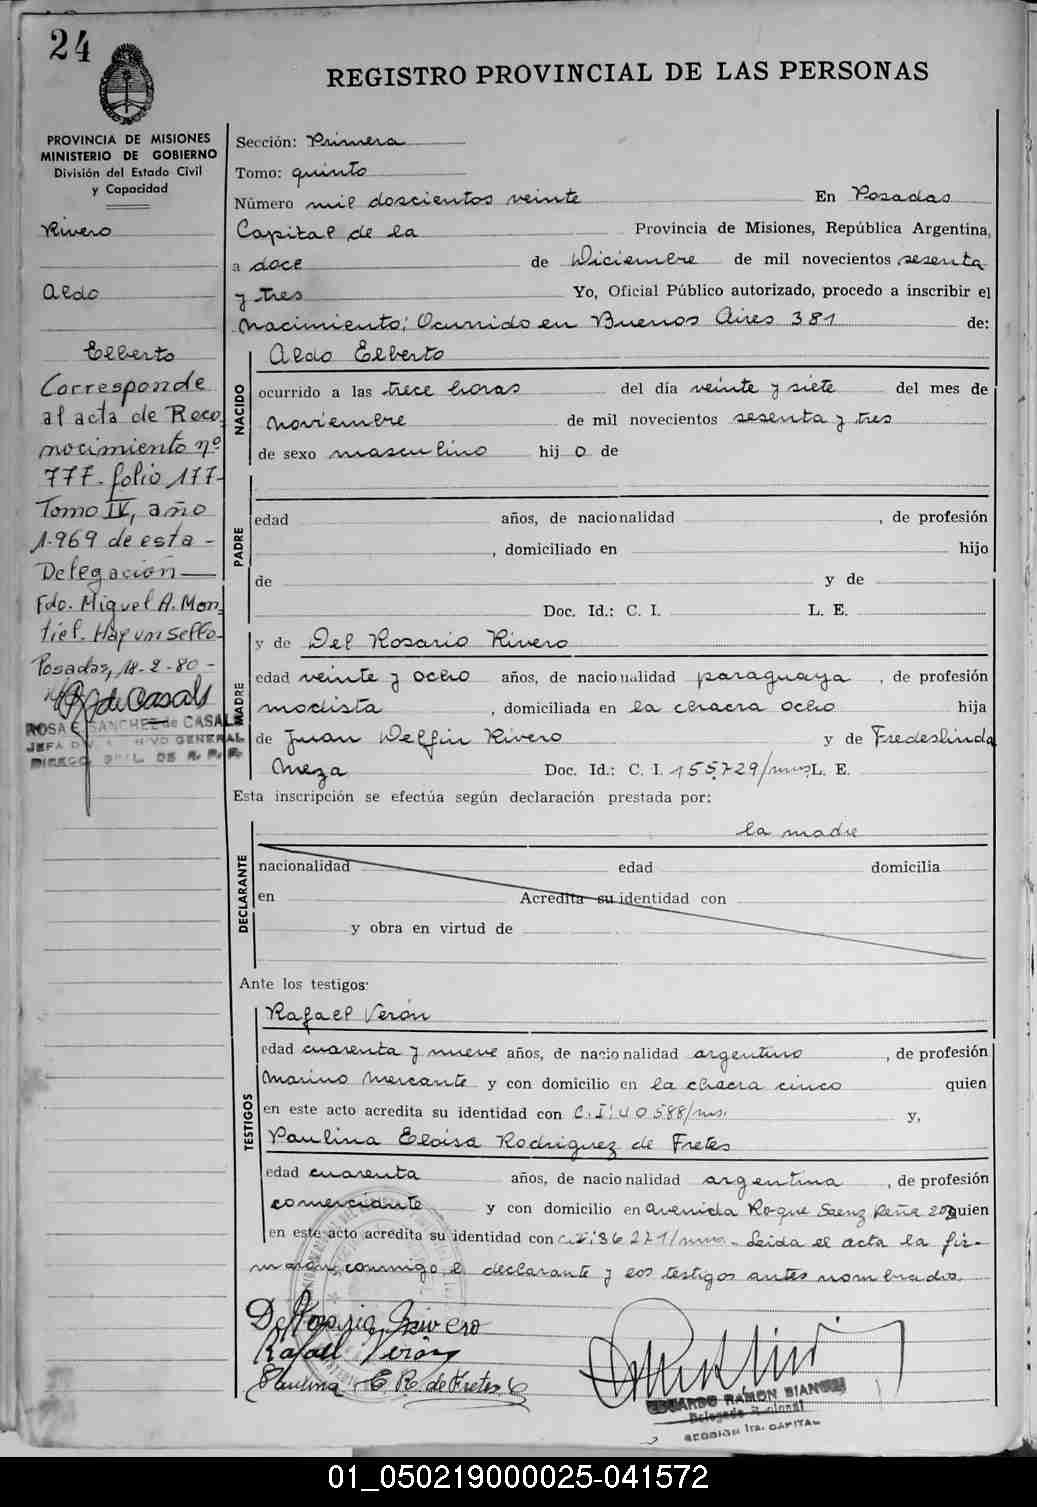 24
REGISTRO PROVINCIAL DE LAS PERSONAS
PROVINCIA DE MISIONES
MINISTERIO DE GOBIERNO
División del Estado Civil
y Capacidad
Rivero
Aldo
Elberto
Corresponde
al acta de Reco
nocimiento nº
777- folio 177-
Tomo IV, año
1.969 de esta -
Delegación —
Fdo. Miguel A. Mon
tiel. Hay un sello.
Posadas, 18-2-80 -
R S de Casals
ROSA E. SANCHEZ de CASALS
JEFA DIV. GENERAL
DIREC. GRAL. DE R. P. P.
Sección: Primera
Tomo: quinto
Número mil doscientos veinte En Posadas
Capital de la Provincia de Misiones, República Argentina,
a doce de Diciembre de mil novecientos sesenta
y tres Yo, Oficial Público autorizado, procedo a inscribir el
Nacimiento: Ocurrido en Buenos Aires 381 de:
NACIDO
Aldo Elberto
ocurrido a las trece horas del día veinte y siete del mes de
Noviembre de mil novecientos sesenta y tres
de sexo masculino hij o de
PADRE
edad años, de nacionalidad , de profesión
, domiciliado en hijo
de y de
Doc. Id.: C. I. L. E.
MADRE
y de Del Rosario Rivero
edad veinte y ocho años, de nacionalidad paraguaya , de profesión
modista , domiciliada en la chacra ocho hija
de Juan Delfin Rivero y de Fredeslinda
Meza Doc. Id.: C. I. 155.729/mnes L. E.
Esta inscripción se efectúa según declaración prestada por:
DECLARANTE
la madre
nacionalidad edad domicilia
en Acredita su identidad con
y obra en virtud de
Ante los testigos:
TESTIGOS
Rafael Verón
edad cuarenta y nueve años, de nacionalidad argentino , de profesión
Marino Mercante y con domicilio en la chacra cinco quien
en este acto acredita su identidad con C.I: 40588/ms. y,
Paulina Eloisa Rodriguez de Fretes
edad cuarenta años, de nacionalidad argentina , de profesión
comerciante y con domicilio en avenida Roque Saenz Peña 203 quien
en este acto acredita su identidad con C.I: 36271/mns - Leida el acta la fir-
maron, conmigo el declarante y los testigos antes nombrados.
Del Rosario Rivero
Rafael Verón
Paulina E. R. de Fretes
EDUARDO RAMON BIANCHI
Delegado Seccional
SECCION 1ra. CAPITAL
01_050219000025-041572